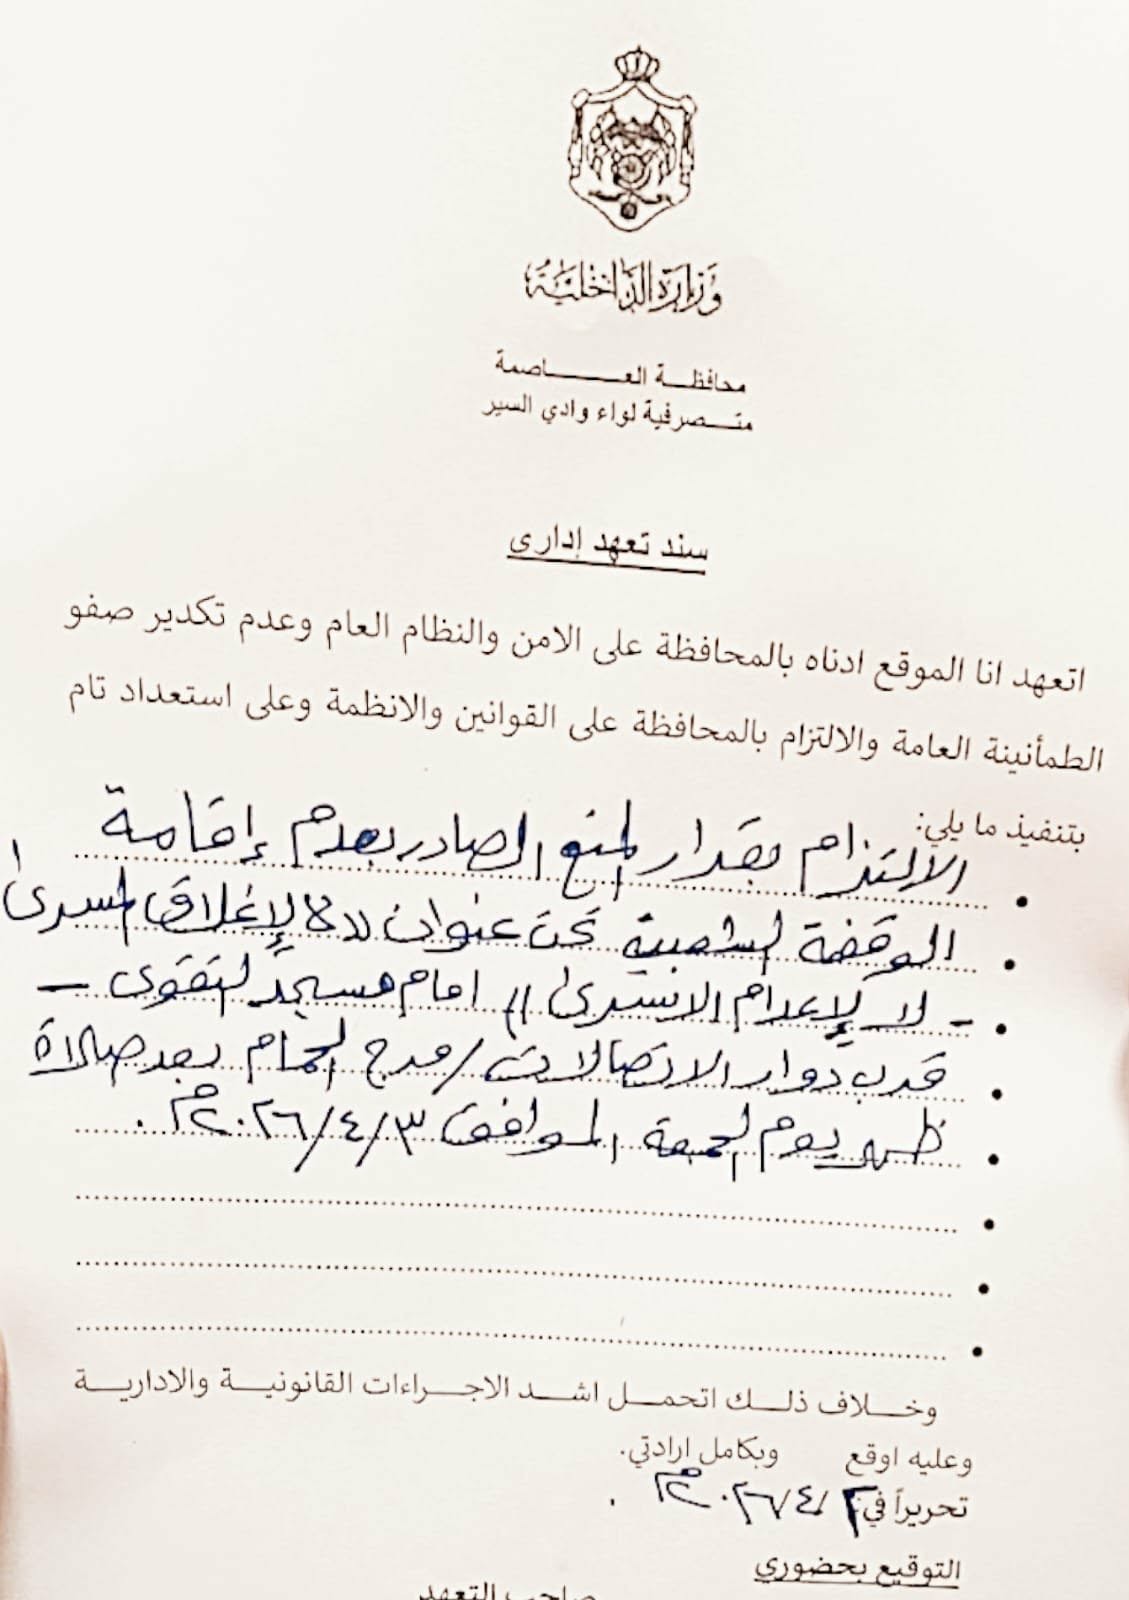 وزارة الداخلية
محافظة العاصمة
متصرفية لواء وادي السير
سند تعهد إداري
اتعهد انا الموقع ادناه بالمحافظة على الامن والنظام العام وعدم تكدير صفو
الطمأنينة العامة والالتزام بالمحافظة على القوانين والانظمة وعلى استعداد تام
بتنفيذ ما يلي:
الالتزام بقرار المنع الصادر بعدم إقامة
الوقفة الشعبية تحت عنوان "لا لإغلاق المسرى
- لا لإعدام الاسرى" امام مسجد التقوى -
قرب دوار الاتصالات / مرج الحمام بعد صلاة
ظهر يوم الجمعة الموافق ٢٠٢٦/٤/٣م.
وخلاف ذلك اتحمل اشد الاجراءات القانونية والادارية
وعليه اوقع وبكامل ارادتي.
تحريراً في: ٢٠٢٦/٤/٢م.
التوقيع بحضوري
صاحب التعهد